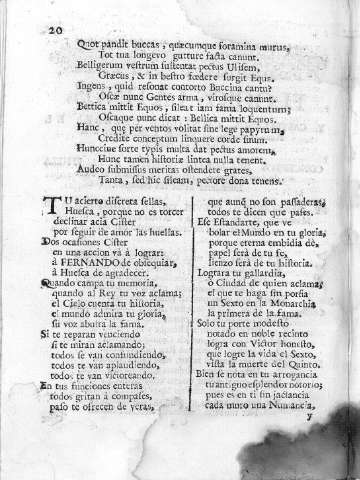 20
Quot pandit buccas, quæcumque foramina murus,
Tot tua longevo gutture facta canunt.
Belligerum vestrum sustentat pectus Ulisem,
Græcus, & in bestro fœdere surgit Equs.
Ingens, quid resonat contorto Buccina cantu?
Oscæ nunc Gentes arma, virosque canunt.
Bettica mittit Equos, sileat iam fama loquentum;
Oscaque punc dicat: Bellica mittit Equos.
Hanc, que per ventos volitat sine lege papyrum,
Credite conceptum linquere corde suum.
Huncciue forte typis multa dat pectus amorem,
Hunc tamen historiæ lintea nulla tenent.
Audeo submissus meritas ostendere grates,
Tanta, sed hic sileam, pectore dona tenens.
TU acierto discreta sellas,
Huesca, porque no es torcer
declinar acia Cister
por seguir de amor las huellas.
Dos ocasiones Cister
en una accion và à lograr:
à FERNANDO de obsequiar,
à Huesca de agradecer.
Quando campa tu memoria,
quando al Rey tu voz aclama;
el Cielo cuenta tu historia,
el mundo admira tu gloria,
su voz abulta la fama.
Si te reparan venciendo
si te miran aclamando;
todos se van confundiendo,
todos te van aplaudiendo,
todos te van victoreando.
En tus funciones enteras
todos gritan à compases,
paso te ofrecen de veras,
que aunq̃ no son passaderas
todos te dicen que pases.
Ese Estandarte, que ve
bolar el Mundo en tu gloria,
porque eterna embidia dè,
papel serà de tu fe,
lienzo serà de tu historia.
Lograra tu gallardia,
ò Ciudad de quien aclama,
el que te haga sin porfia
un Sexto en la Monarchia
la primera de la fama.
Solo tu porte modesto
notado en noble recinto
logra con Victor honesto,
que logre la vida el Sexto,
vista la muerte del Quinto.
Bien se nota en tu arrogancia
tu antiguo esplendor notorio;
pues es en ti sin jactancia
cada muro una Numancia,
y